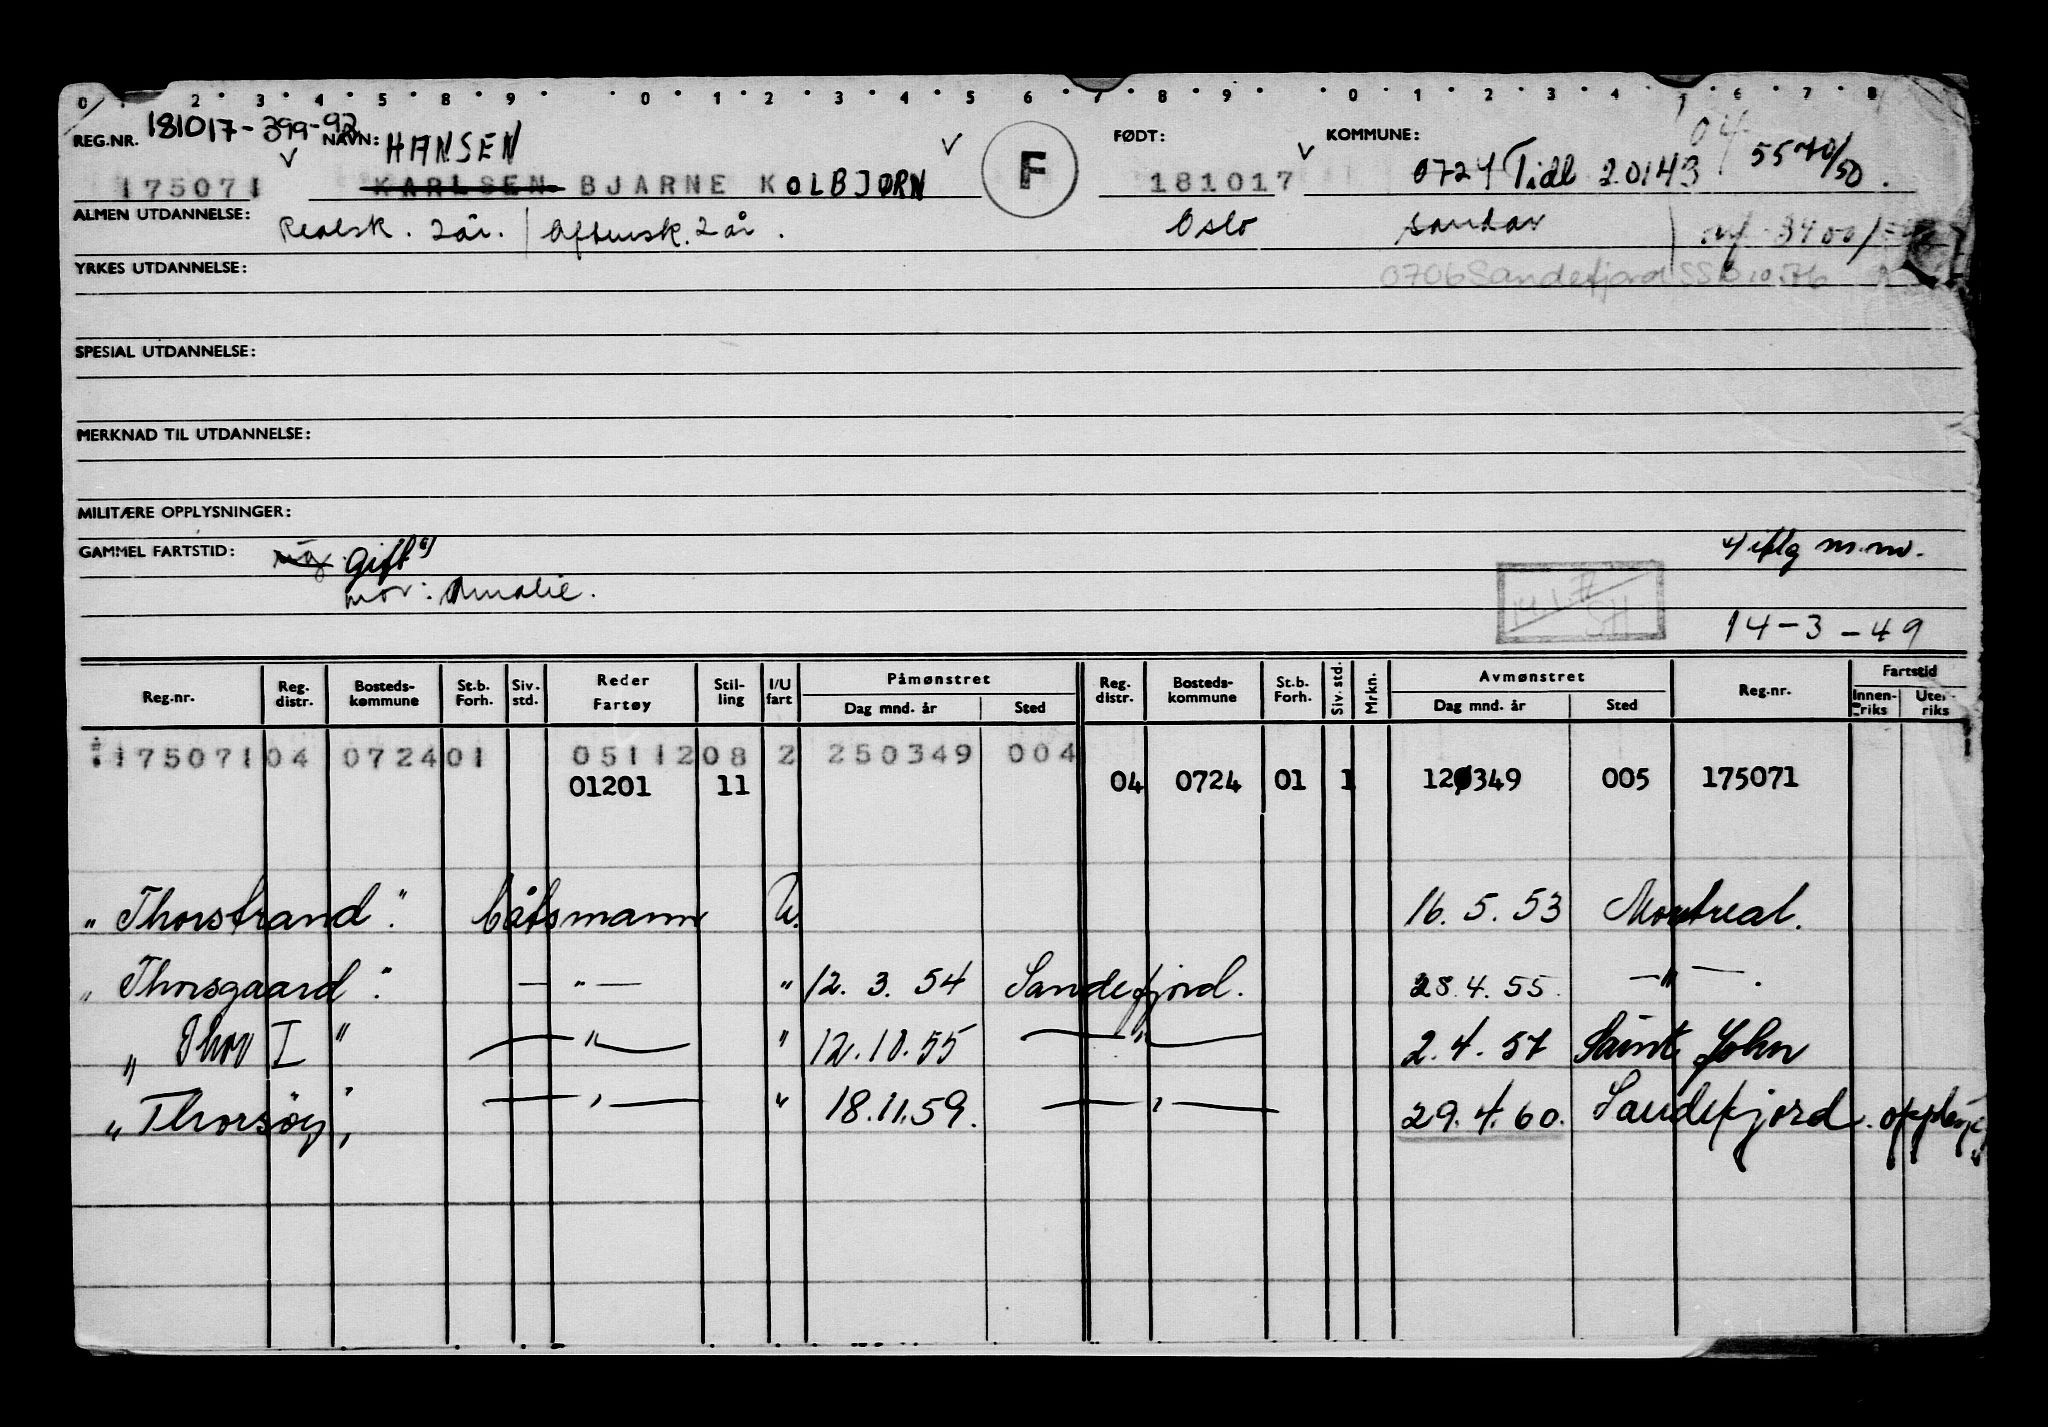 0 1 2 3 4 5 8 9 0 1 2 3 4 5 6 7 8 9 0 1 2 3 4 5 6 7 8
REG.NR. 181017-399-92 NAVN: HANSEN F FØDT: KOMMUNE: 04
175071 KARLSEN BJARNE KOLBJØRN 181017 0724 Tidl 20143 5570/50.
ALMEN UTDANNELSE: Realsk. 2 år. / Aftensk. 2 år. Oslo Sandar
YRKES UTDANNELSE: 0706 Sandefjord
SPESIAL UTDANNELSE:
MERKNAD TIL UTDANNELSE:
MILITÆRE OPPLYSNINGER:
GAMMEL FARTSTID: ug. gift 4) 4) iflg m.m.
mor: Amalie.
14-3-49
Reg.nr. Reg. distr. Bosteds- kommune St.b. Forh. Siv. std. Reder Fartøy Stil- ling I/U fart Påmønstret Dag mnd. år Sted Reg. distr. Bosteds- kommune St.b. Forh. Siv. std. Mrkn. Avmønstret Dag mnd. år Sted Reg.nr. Fartstid Innen- riks Uten- riks
175071 04 0724 01 05112 08 2 250349 004
01201 11 04 0724 01 1 120349 005 175071
"Thorstrand". båtsmann U. 16.5.53 Montreal.
"Thorsgaard". —"— " 12.3.54 Sandefjord. 28.4.55. —"—.
"Thor I" —"— " 12.10.55 —"— 2.4.57 Saint John
"Thorsøy", —"— " 18.11.59. —"— 29.4.60. Sandefjord.